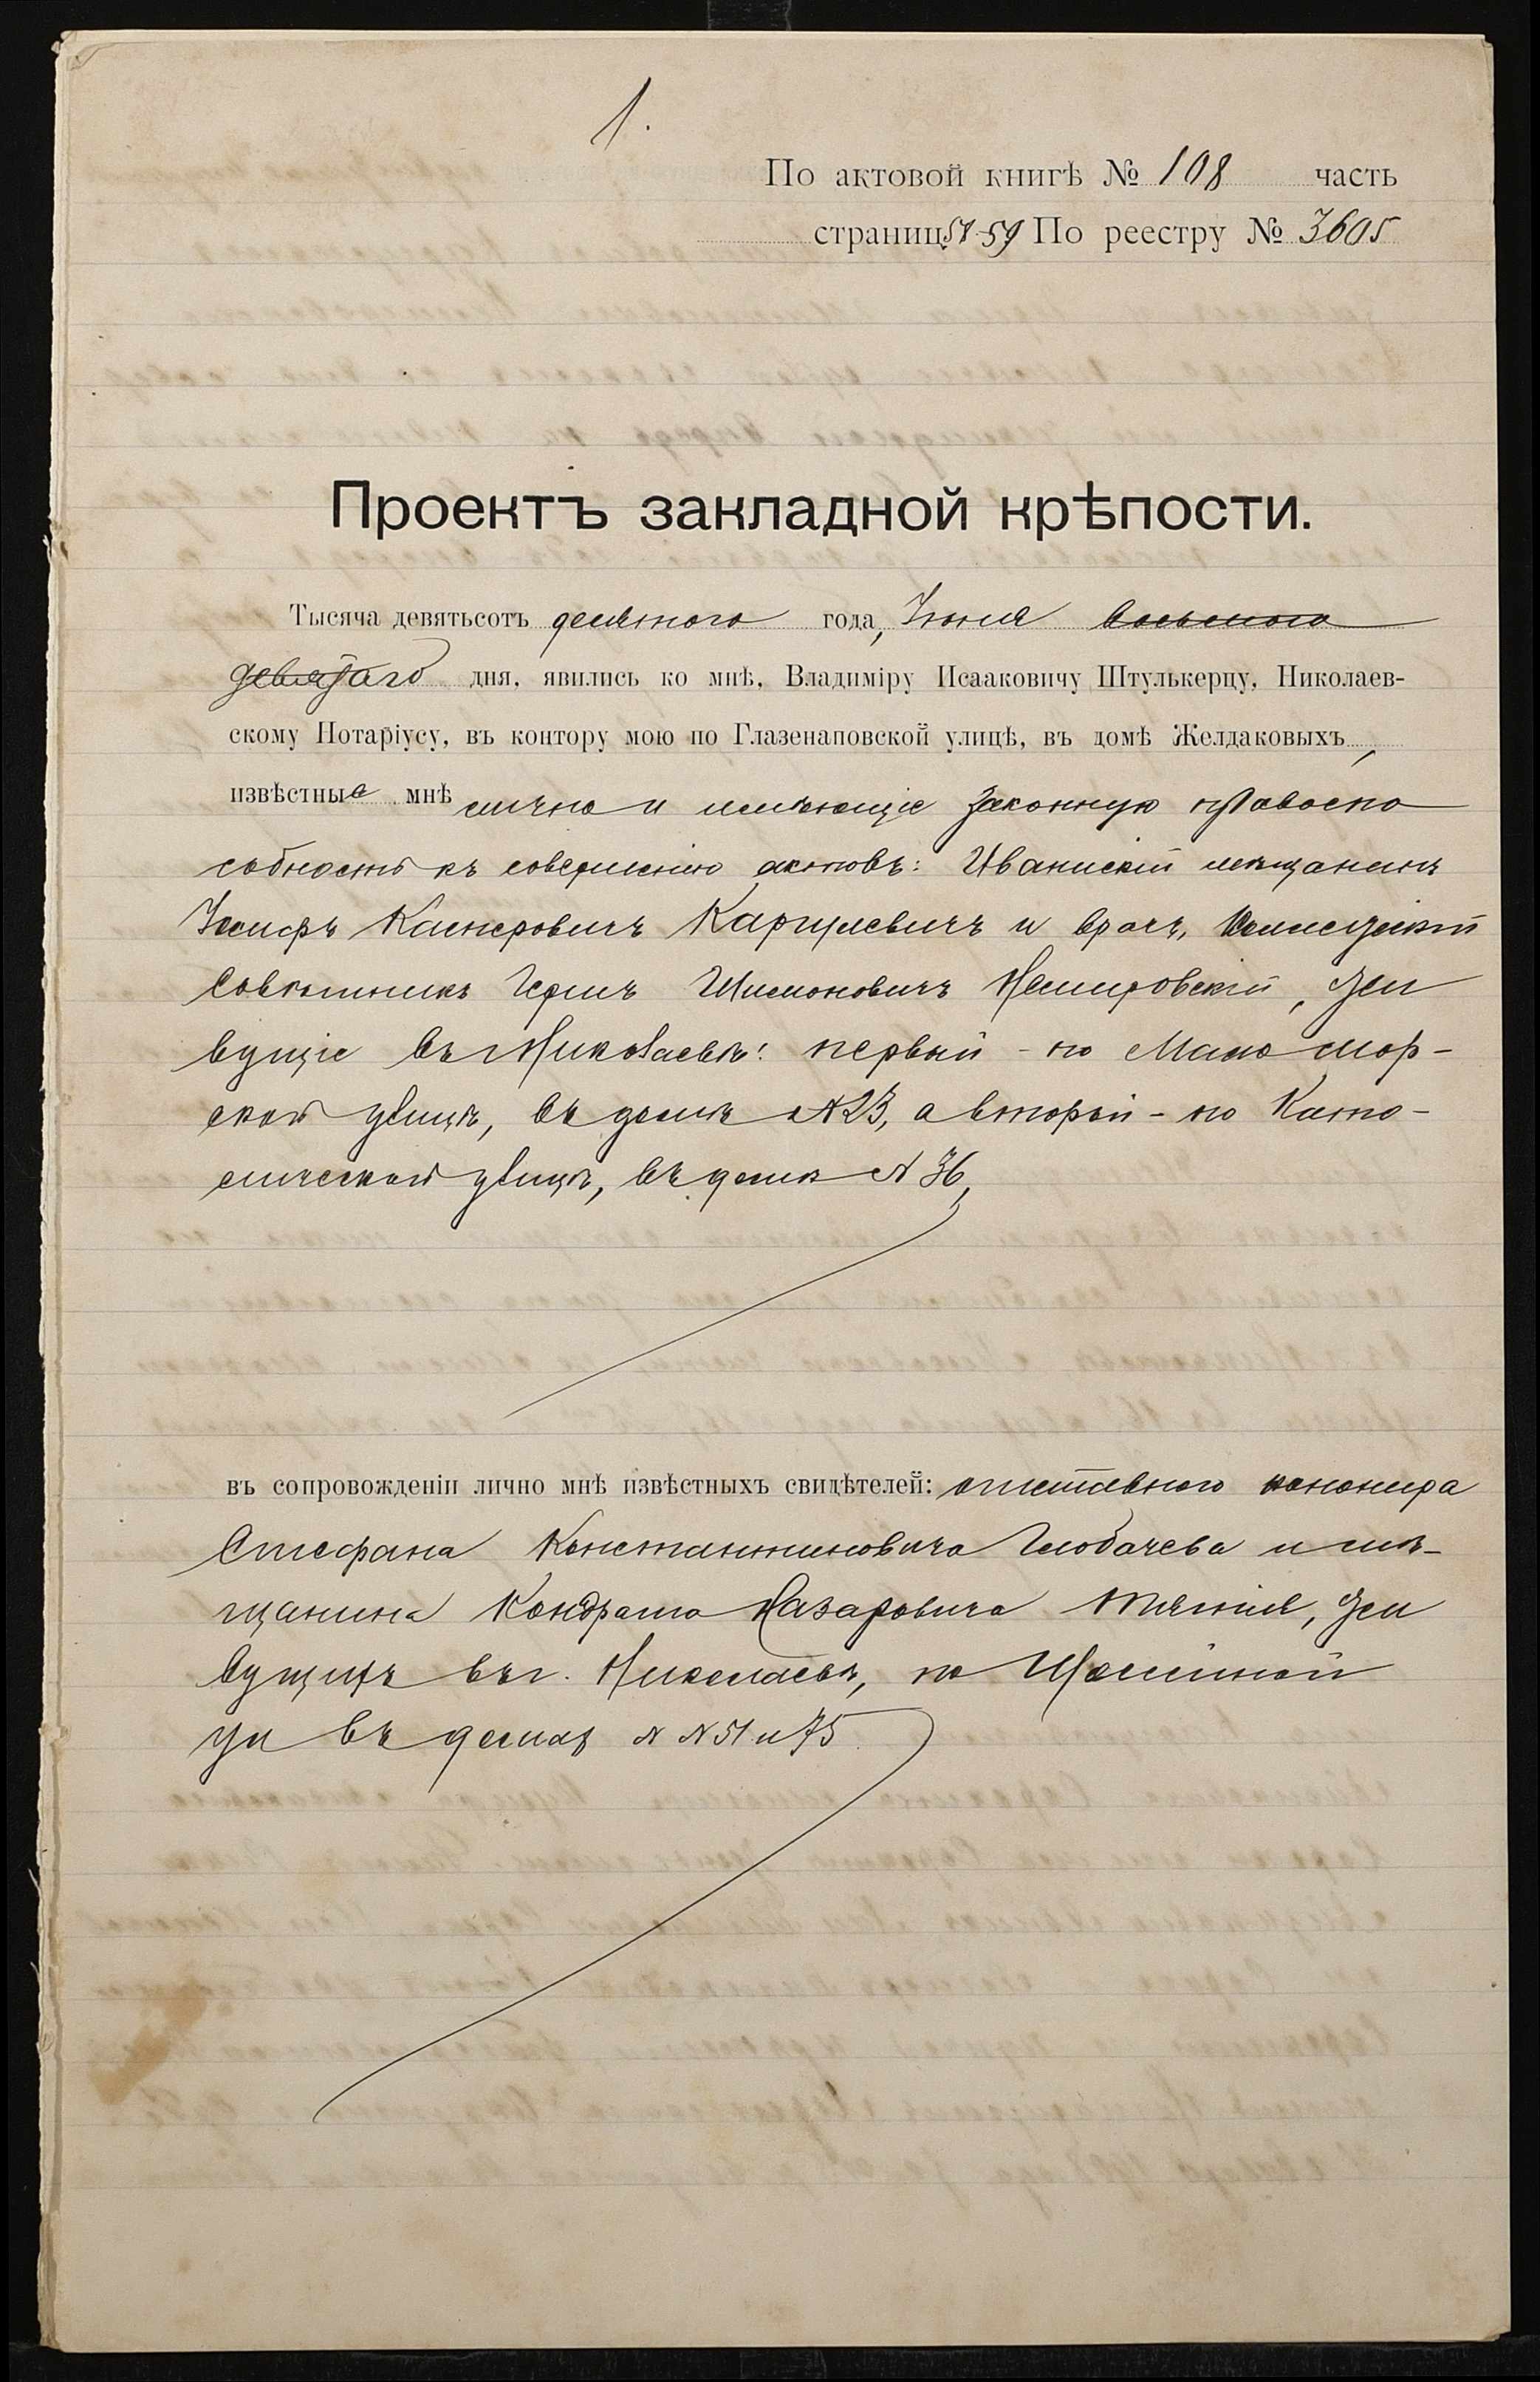 1.
По актовой книгѣ № 108 часть
страниц 57-59 По реестру № 3605
Проектъ закладной крѣпости.
Тысяча девятьсотъ десятого года, Іюня восьмого
девятаго дня, явились ко мнѣ, Владиміру Исааковичу Штулькерцу, Николаев-
скому Нотаріусу, въ контору мою по Глазенаповской улицѣ, въ домѣ Желдаковыхъ,
извѣстные мнѣ лично и имѣющіе законную правоспо
собность къ совершенію актовъ: Иванискій мѣщанинъ
Іосифъ Касперовичъ Карцлевичъ и врачъ, Коллежскій
Совѣтникъ Шимоновичъ Немировскій, жи
вущіе въ Николаевѣ: первый - по Мало мор-
ской улицѣ, въ домѣ №23, а второй - по Като-
лической улицѣ, въ домѣ № 36,
въ сопровожденіи лично мнѣ извѣстныхъ свидѣтелей: отставного канонира
Стефана Константиновича Глобачева и мѣ-
щанина Кондрата Назаровича жи
вущихъ въ г. Николаевѣ, по
ул въ домахъ № № 51 и 75